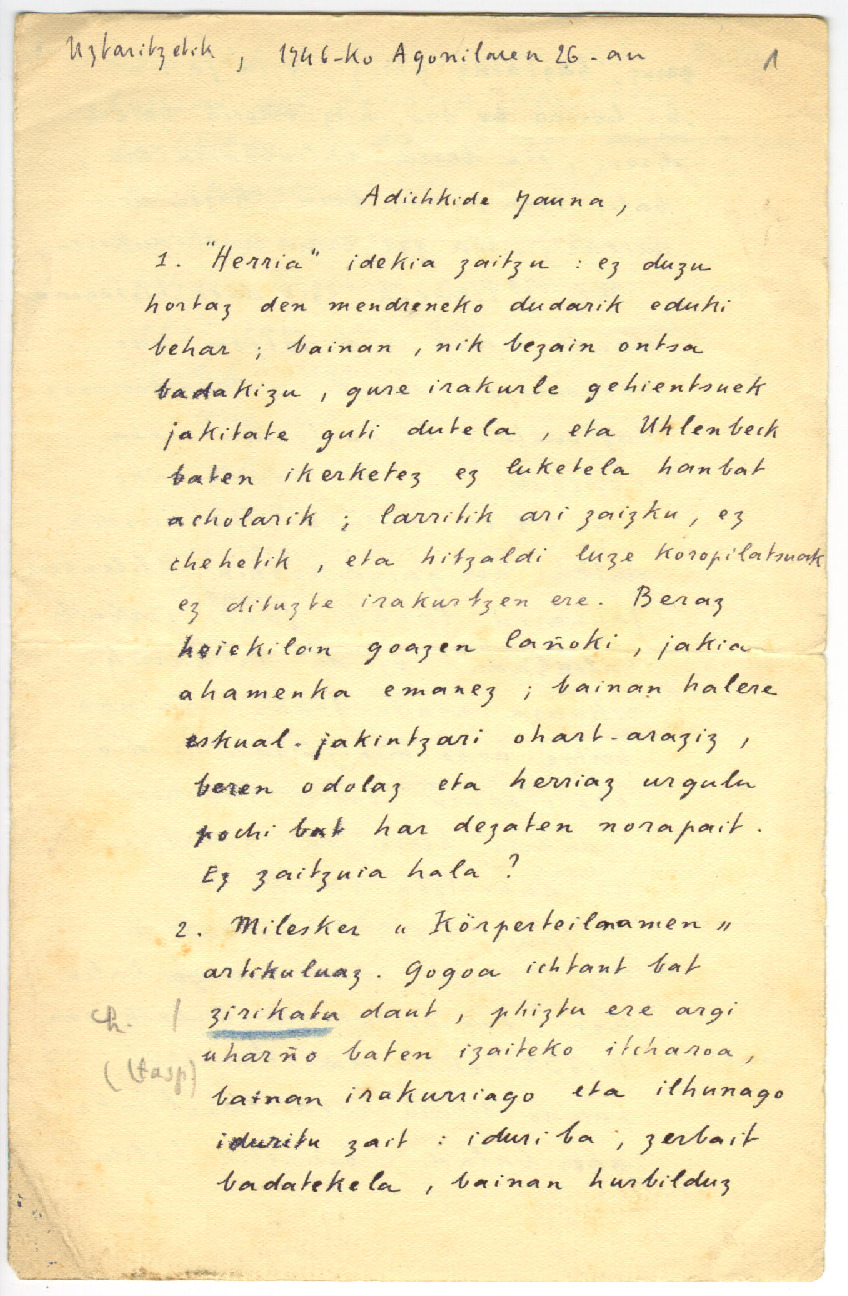 Uztaritzetik, 1946-ko Agorrilaren 26-an
1
Adichkide Jauna,
1. "Herria" idekia zaitzu : ez duzu
hortaz den mendreneko dudarik eduki
behar ; bainan, nik bezain ontsa
badakizu, gure irakurle gehientsuek
jakitate guti dutela, eta Uhlenbeck
baten ikerketez ez luketela hanbat
acholarik ; larritik ari zaizku, ez
chehetik, eta hitzaldi luze koropilatsuak
ez dituzte irakurtzen ere. Beraz
heiekilan goazen lañoki, jakia
ahamenka emanez ; bainan halere
eskual-jakintzari ohart-araziz,
beren odolaz eta herriaz urgulu
pochi bat har dezaten norapait.
Ez zaitzuia hala ?
2. Milesker „ Körperteilnamen "
artikuluaz. Gogoa ichtant bat
ch. / zirikatu daut, phiztu ere argi
uharño baten izaiteko itcharoa,
bainan irakurriago eta ilhunago
iduritu zait : iduri ba, zerbait
badatekela, bainan hurbilduz